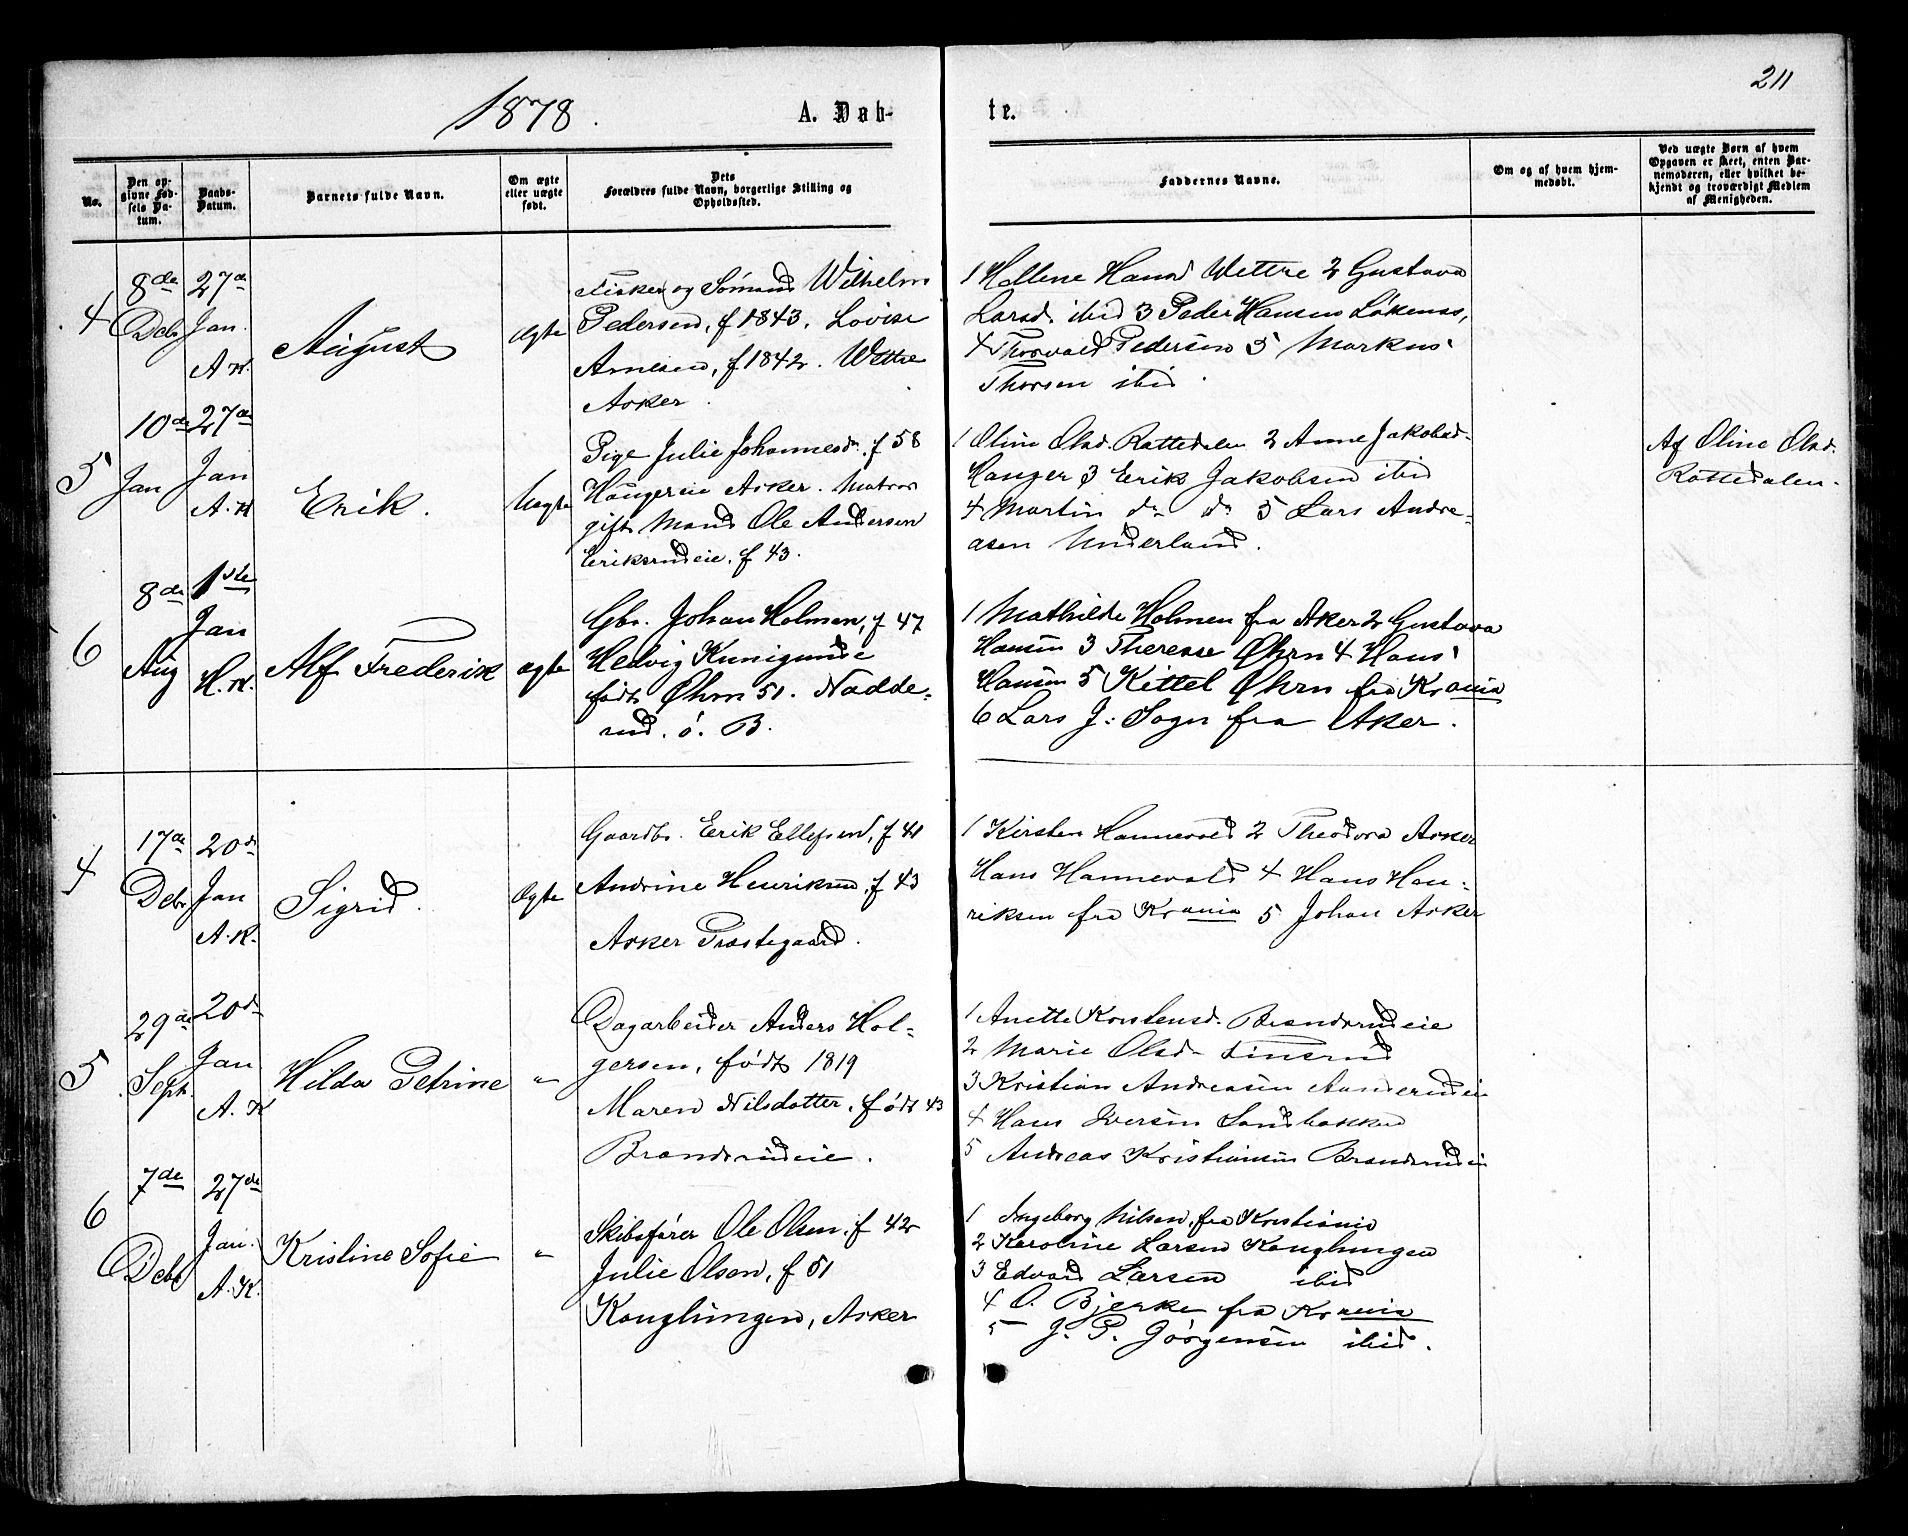 1878.
A. Døb-
te.
211
No.
Den op-
givne Fød-
sels Da-
tum.
Daabs-
Datum.
Barnets fulde Navn.
Om ægte
eller uægte
født.
Dets
Forældres fulde Navn, borgerlige Stilling og
Opholdssted.
Faddernes Navne.
Om og af hvem hjem-
medøbt.
Ved uægte Børn af hvem
Opgaven er skeet, enten Bar-
nemoderen, eller hvilket be-
kjendt og troværdigt Medlem
af Menigheden.
4
8de
Debr
27de
Jan.
A K.
August
ægte
Fisker og Sømand Wilhelm
Pedersen, f 1843. Lovise
Arnesen, f 1842. Wettre
Asker.
1 Hellene Hansd Wettre 2 Gustava
Larsd. ibid 3 Peder Hansen Løkenes,
4 Thorvald Pedersen 5 Markus
Thorsen ibid.
5
10de
Jan
27de
Jan
A. K
Erik.
Uægte
Pige Julie Johannesdr. f 58
Haugereie Asker. Matros
gift Mand Ole Andersen
Eriksrudeie. f 43.
1 Oline Olsd. Rottedalen 2 Anne Jakobsd-
Hauger 3 Erik Jakobsen ibid
4 Martin do do 5 Lars Andre-
asen Underland.
Af Oline Olsd.
Rottedalen.
6
8de
Aug
1ste
Jan
H. K.
Alf Frederik
ægte
Gbr. Johan Holmen, f 47
Hedvig Kunigunde
født Øhrn 51. Nadde-
rud. ø. B.
1 Mathilde Holmen fra Aker 2 Gustava
Hansen 3 Therese Øhrn 4 Hans
Hansen 5 Kittel Øhrn fra Krania
6 Lars J. Sogn fra Aker.
4
17de
Debr
20de
Jan
A. K.
Sigrid.
Ægte
Gaardbr. Erik Ellefsen, f 41
Andrine Henriksen, f 43
Asker Præstegaard.
1 Kirsten Hannevold 2 Theodora Asker
Hans Hannevold 4 Hans Hen-
riksen fra Krania 5 Johan Asker
5
29de
Septr.
20de
Jan
A. K
Hilda Petrine
"
Dagarbeider Anders Hol-
gersen, født 1819
Maren Nilsdatter, født 43
Brandsrudeie.
1 Anette Karstensd. Brandsrudeie
2 Marie Olsd. Finsrud
3 Kristian Andreasen Aanderudeie
4 Hans Iversen Sandbakken
5 Andreas Kristiansen Brandsrudeie
6
7de
Debr
27de
Jan.
A. K.
Kristine Sofie
"
Skibsfører Ole Olsen, f 42
Julie Olsen, f 51
Konglungen, Asker
1 Ingeborg Nilsen, fra Kristiania
2 Karoline Larsen Konglungen
3 Edvard Larsen ibid
4 O. Bjerke fra Krania
5 J. P. Jörgensen ibid.